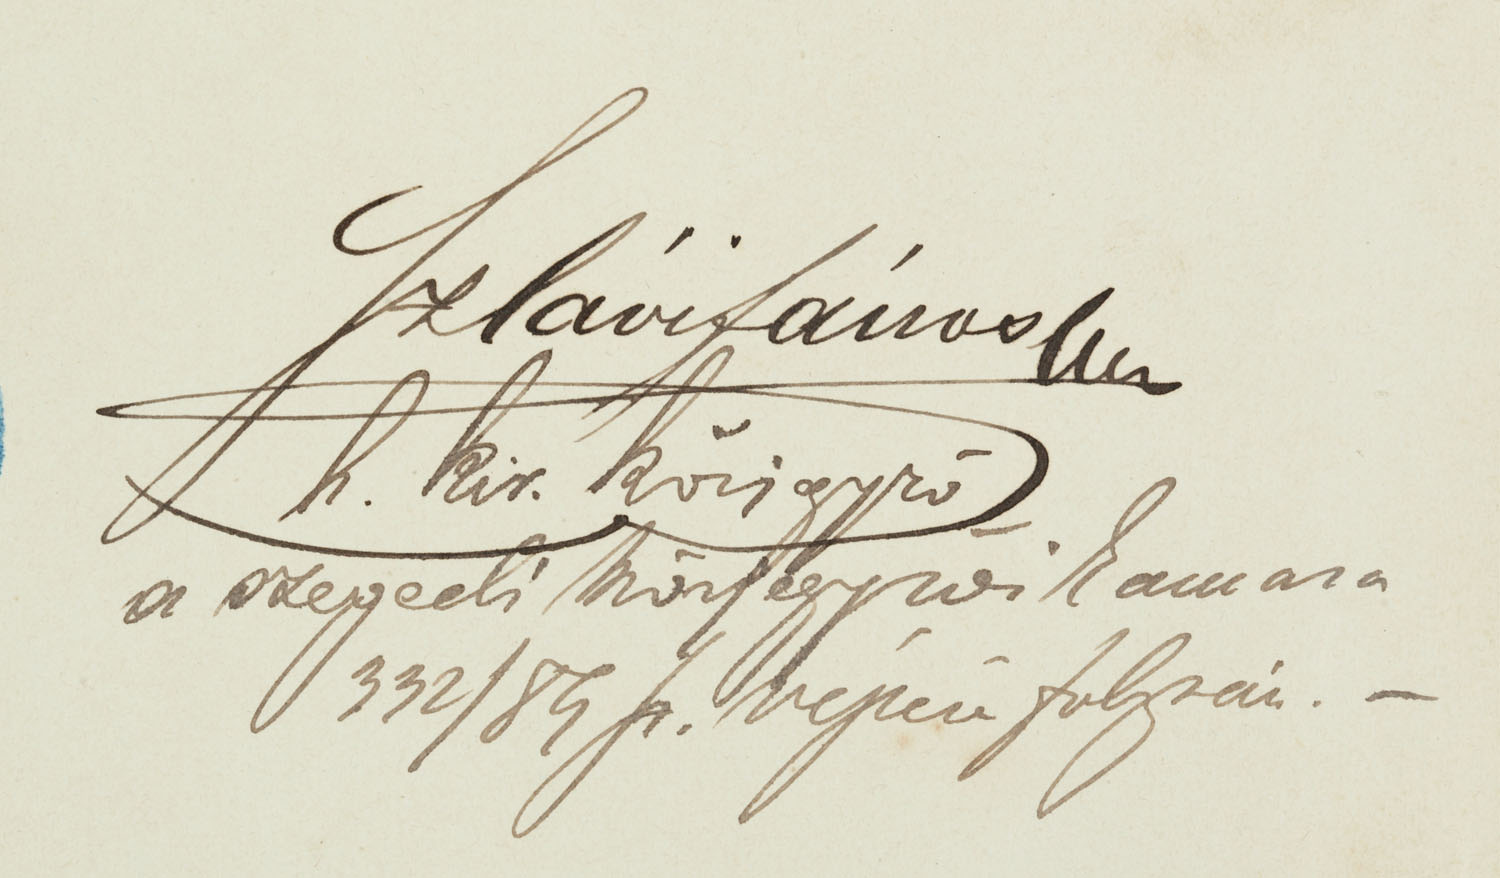 Szlávi János
h. kir. közjegyző
a szegedi közjegyzői kamara
332/89 sz. végzése folytán. —